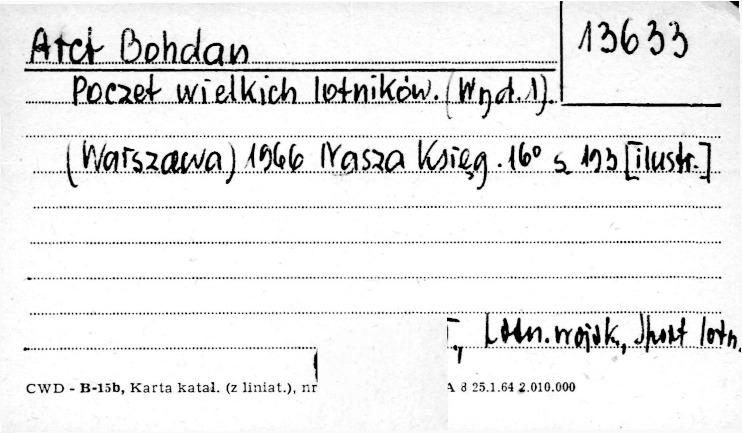 Arct Bohdan
13633
Poczet wielkich lotników. (Wyd. 1).
(Warszawa) 1966 Nasza Księg. 16° s 193 [ilustr.]
Lotn. wojsk, Sport lotn.
CWD - B-15b, Karta katal. (z liniat.), nr
A 8 25.1.64 2.010.000